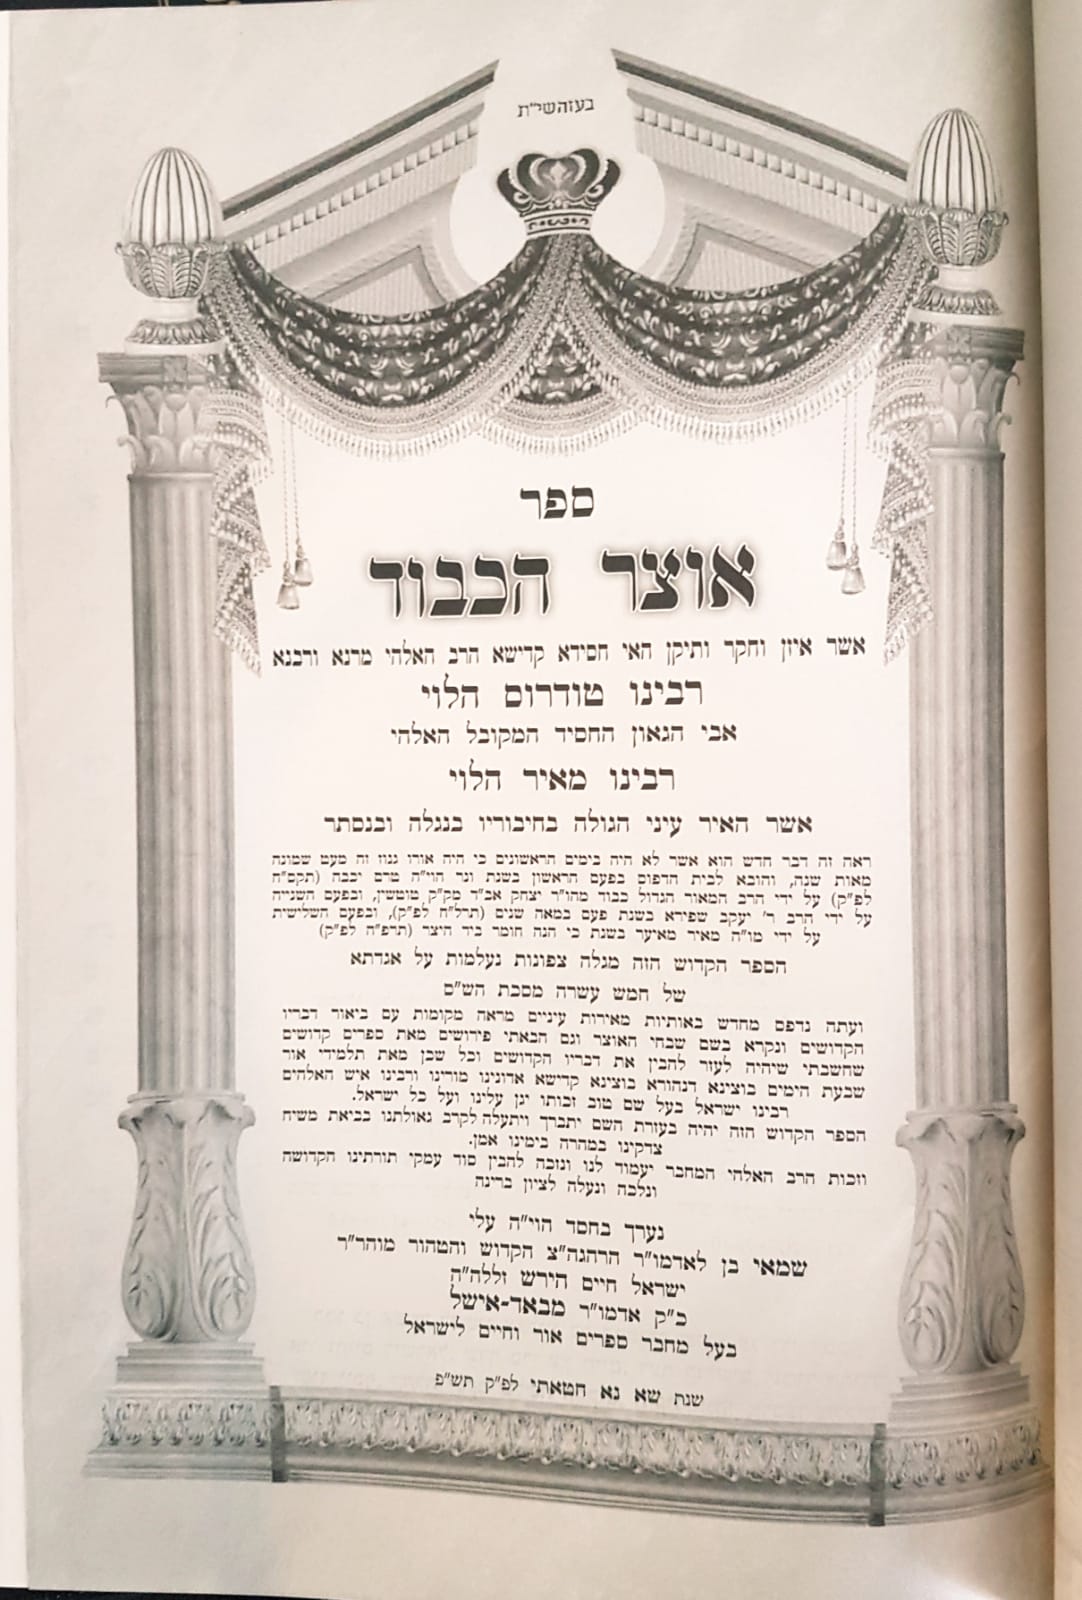 בעזהשי״ת
ספר
אוצר הכבוד
אשר איזן וחקר ותיקן האי חסידא קדישא הרב האלהי מרנא ורבנא
רבינו טודרוס הלוי
אבי הגאון החסיד המקובל האלהי
רבינו מאיר הלוי
אשר האיר עיני הגולה בחיבוריו בנגלה ובנסתר
ראה זה דבר חדש הוא אשר לא היה בימים הראשונים כי היה אורו גנוז זה מעט שמונה
מאות שנה, והובא לבית הדפוס בפעם הראשון בשנת ונר הוי״ה טרם יכבה (תקס״ח
לפ״ק) על ידי הרב המאור הגדול כבוד מהו״ר יצחק אב״ד מק״ק טוטשין, ובפעם השנייה
על ידי הרב ר׳ יעקב שפירא בשנת פעם במאה שנים (תרל״ח לפ״ק), ובפעם השלישית
על ידי מו״ה מאיר מאיער בשנת כי הנה חומר ביד היצר (תרפ״ה לפ״ק)
הספר הקדוש הזה מגלה צפונות נעלמות על אגדתא
של חמש עשרה מסכת הש״ס
ועתה נדפס מחדש באותיות מאירות עיניים מראה מקומות עם ביאור דבריו
הקדושים ונקרא בשם שבחי האוצר וגם הבאתי פירושים מאת ספרים קדושים
שחשבתי שיהיה לעזר להבין את דבריו הקדושים וכל שכן מאת תלמידי אור
שבעת הימים בוצינא דנהורא בוצינא קדישא אדונינו מורינו ורבינו איש האלהים
רבינו ישראל בעל שם טוב זכותו יגן עלינו ועל כל ישראל.
הספר הקדוש הזה יהיה בעזרת השם יתברך ויתעלה לקרב גאולתנו בביאת משיח
צדקינו במהרה בימינו אמן.
וזכות הרב האלהי המחבר יעמוד לנו ונזכה להבין סוד עמקי תורתינו הקדושה
ונלכה ונעלה לציון ברינה
נערך בחסד הוי״ה עלי
שמאי בן לאדמו״ר הרהגה״צ הקדוש והטהור מוהר״ר
ישראל חיים הירש זללה״ה
כ״ק אדמו״ר מבאד-אישל
בעל מחבר ספרים אור וחיים לישראל
שנת שא נא חטאתי לפ״ק תש״פ